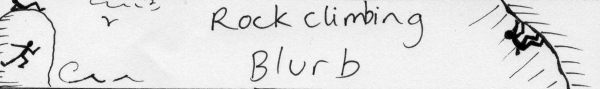 Rock climbing
Blurb